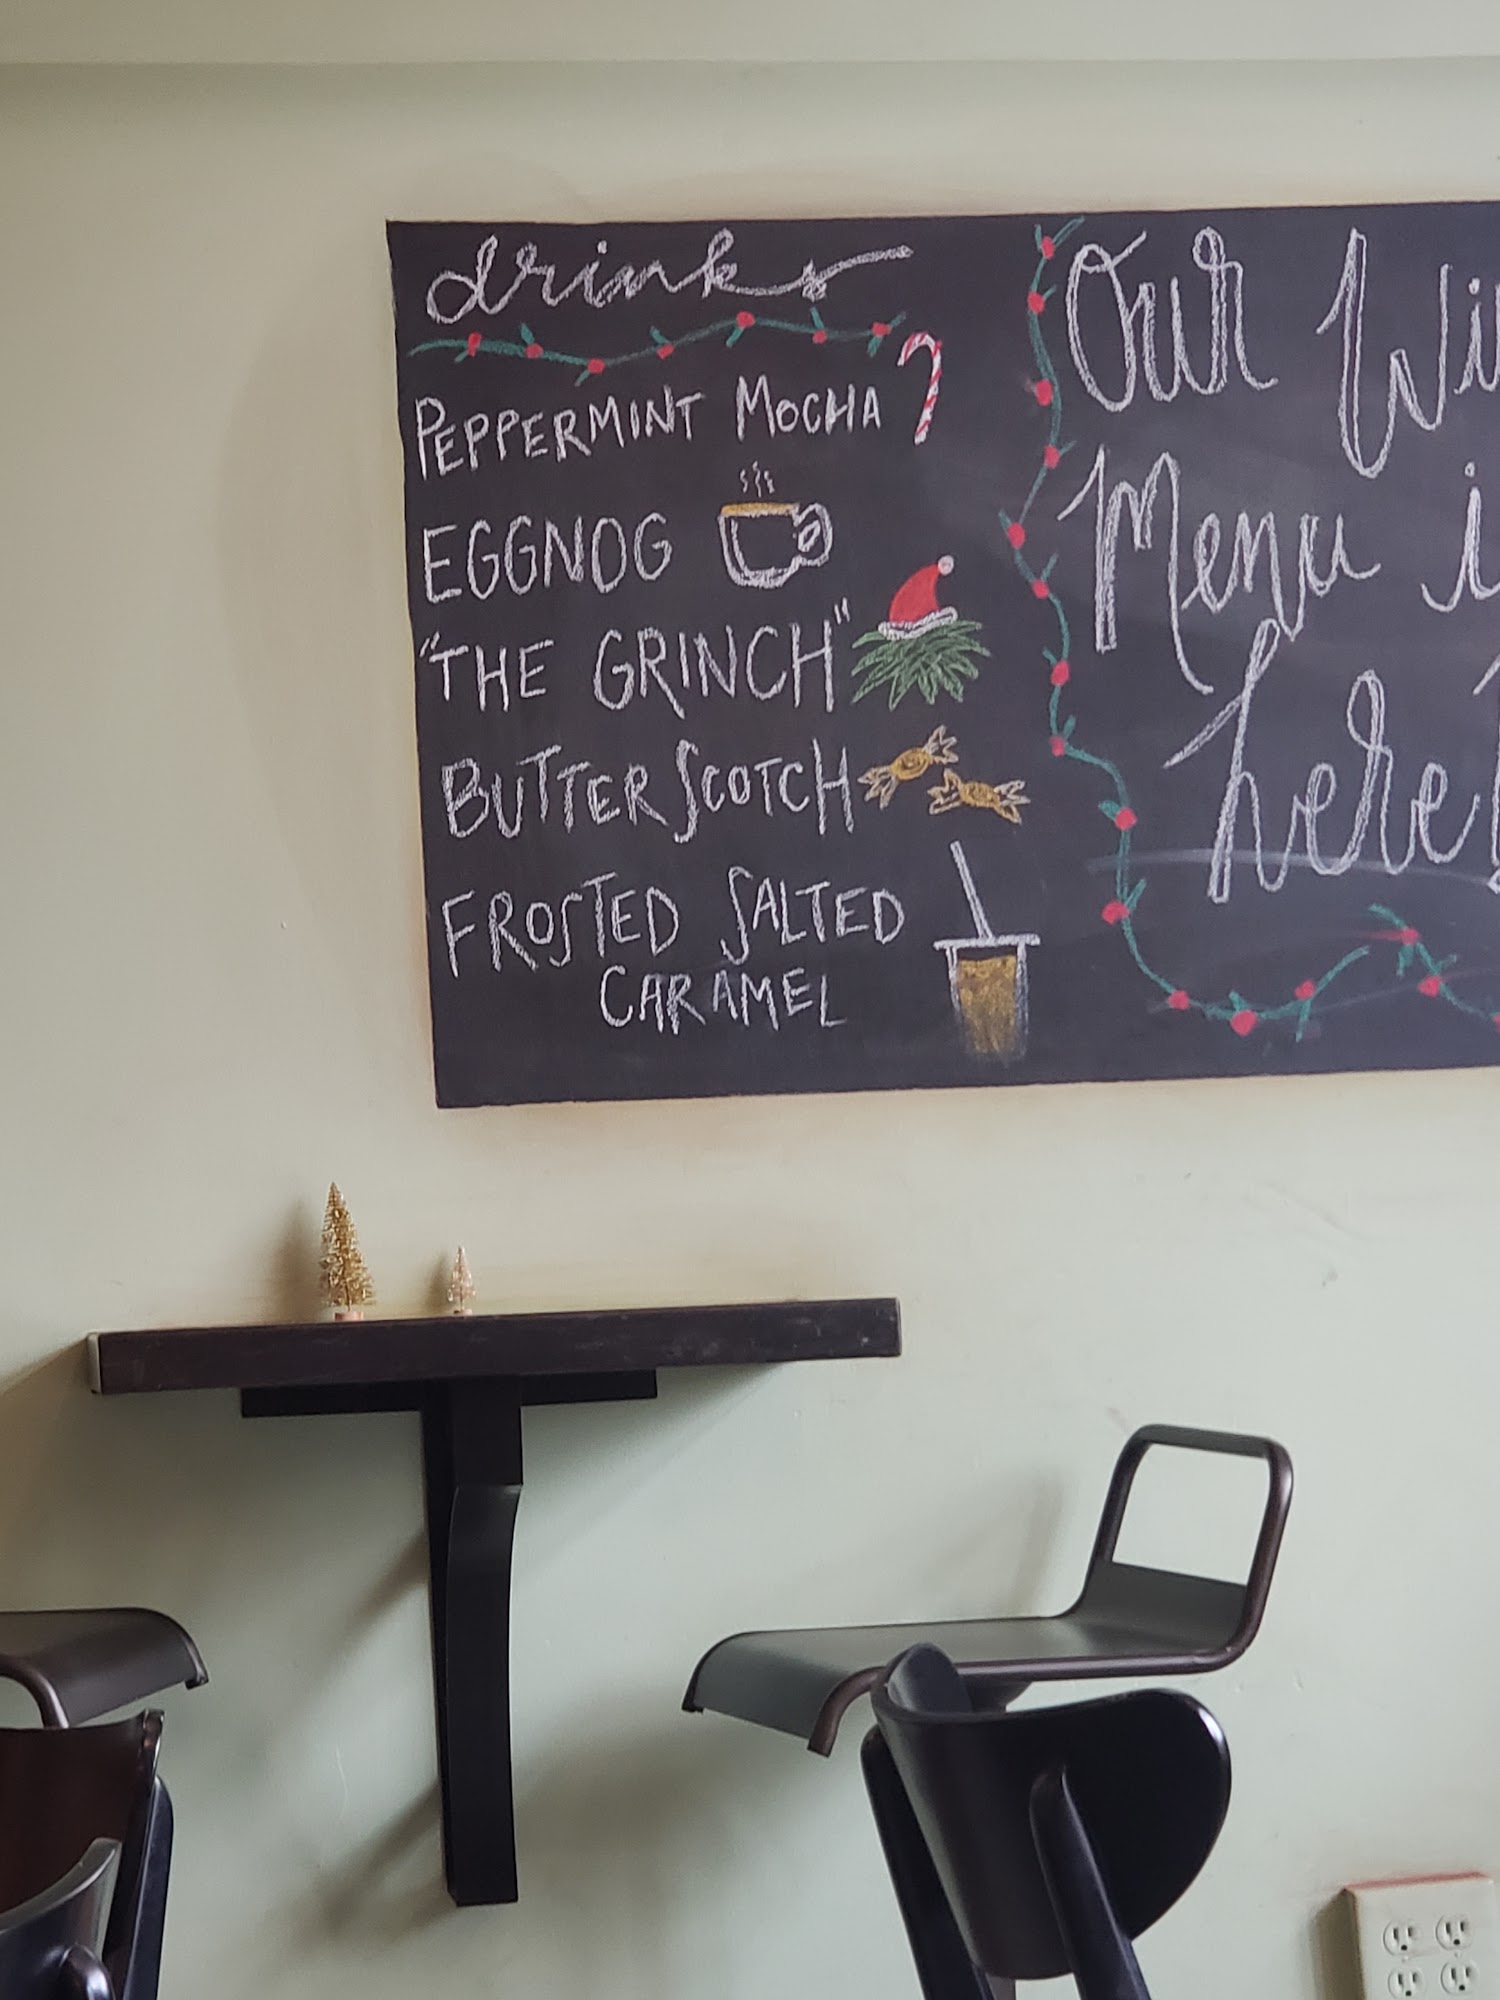 drinks
PEPPERMINT MOCHA
EGGNOG
"THE GRINCH"
BUTTERSCOTCH
FROSTED SALTED
CARAMEL
Our Wi
Menu i
here!